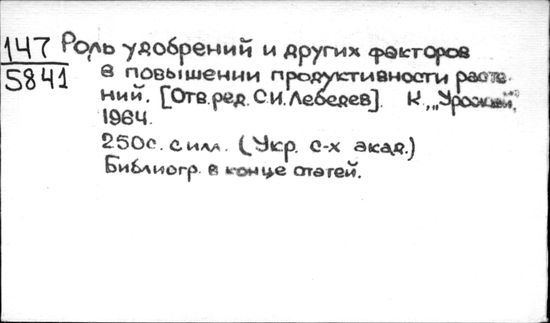 147
5841
Роль удобрений и других факторов
в повышении продуктивности расте-
ний. [Отв. ред. С.И. Лебедев]. К., "Урожай",
1964.
250с. с илл. (Укр. с-х акад.)
Библиогр. в конце статей.